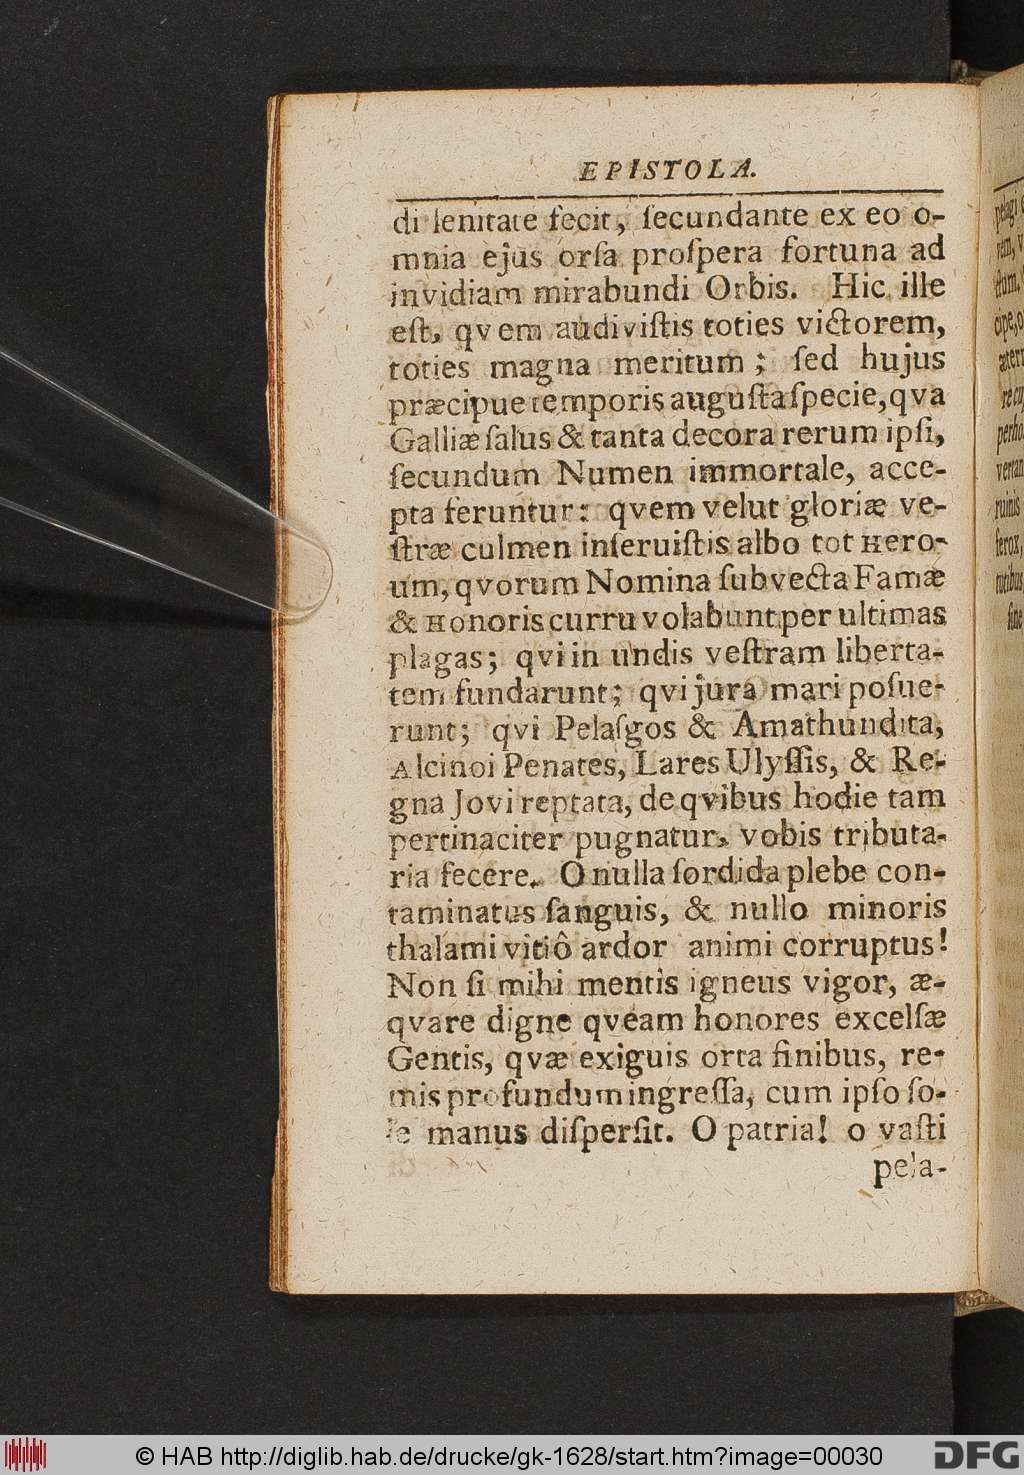 EPISTOLA.
di lenitate fecit, ſecundante ex eo o-
mnia ejus orſa proſpera fortuna ad
invidiam mirabundi Orbis. Hic ille
eſt, qvem audiviſtis toties victorem,
toties magna meritum; ſed hujus
præcipue temporis auguſta ſpecie, qva
Galliæ ſalus & tanta decora rerum ipſi,
ſecundum Numen immortale, acce-
pta feruntur: qvem velut gloriæ ve-
ſtræ culmen inſeruiſtis albo tot Hero-
um, qvorum Nomina ſubvecta Famæ
& Honoris curru volabunt per ultimas
plagas; qvi in undis veſtram liberta-
tem fundarunt; qvi jura mari poſue-
runt; qvi Pelaſgos & Amathundita,
Alcinoi Penates, Lares Ulyſſis, & Re-
gna Jovi reptata, de qvibus hodie tam
pertinaciter pugnatur, vobis tributa-
ria fecere. O nulla ſordida plebe con-
taminatus ſanguis, & nullo minoris
thalami vitiô ardor animi corruptus!
Non ſi mihi mentis igneus vigor, æ-
qvare digne qveam honores excelſæ
Gentis, qvæ exiguis orta finibus, re-
mis profundum ingreſſa, cum ipſo ſo-
le manus diſperſit. O patria! o vaſti
pela-
© HAB http://diglib.hab.de/drucke/gk-1628/start.htm?image=00030
DFG